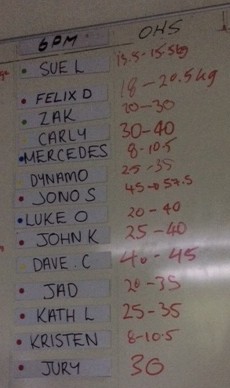 6PM OHS
SUE L 13.5-15.5kg
FELIX D 18-20.5kg
ZAK 20-30
CARLY 30-40
MERCEDES 8-10.5
DYNAMO 25-35
JONO S 45-57.5
LUKE O 20-40
JOHN K 25-40
DAVE.C 40-45
JAD 20-35
KATH L 25-35
KRISTEN 8-10.5
JURY 30